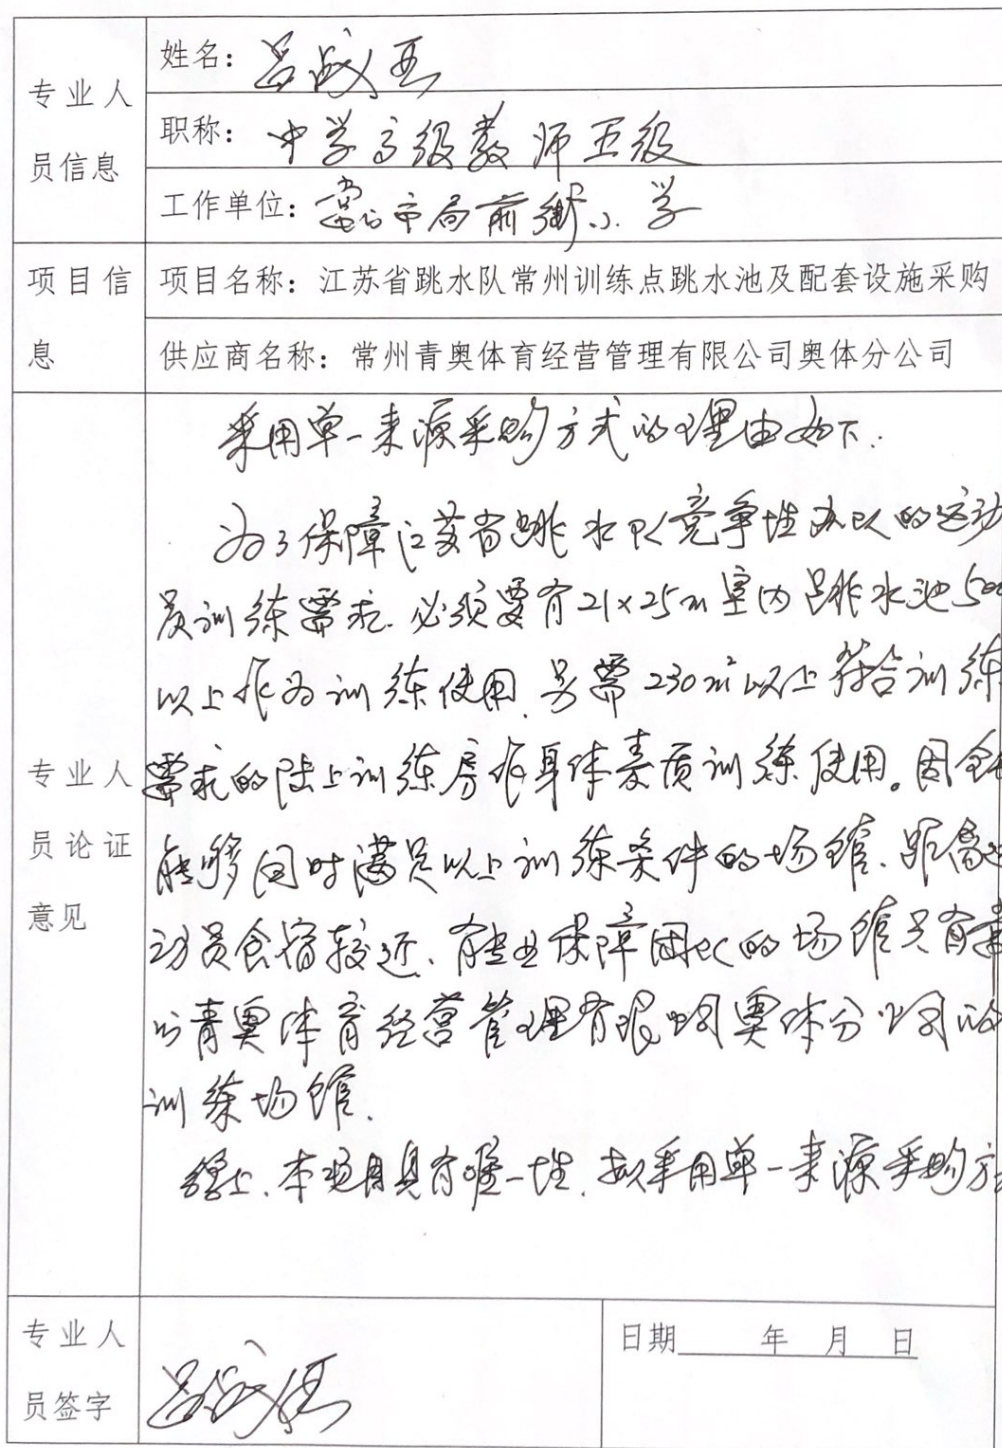 专业人
员信息
姓名：吕
职称：中学高级教师五级
工作单位：常州市局前街小学
项目信
息
项目名称：江苏省跳水队常州训练点跳水池及配套设施采购
供应商名称：常州青奥体育经营管理有限公司奥体分公司
专业人
员论证
意见
采用单一来源采购方式的理由如下：
为了保障江苏省跳水队竞争性办队的运动
员训练需求，必须要有21×25m室内跳水池500
以上作为训练使用，另需230m²以上符合训练
需求的陆上训练房作身体素质训练使用。因全
能够同时满足以上训练条件的场馆、距离运
动员食宿较近、有专业保障团队的场馆只有常
州青奥体育经营管理有限公司奥体分公司的
训练场馆.
综上，本项目具有唯一性，拟采用单一来源采购方
专业人
员签字
吕
日期 年 月 日